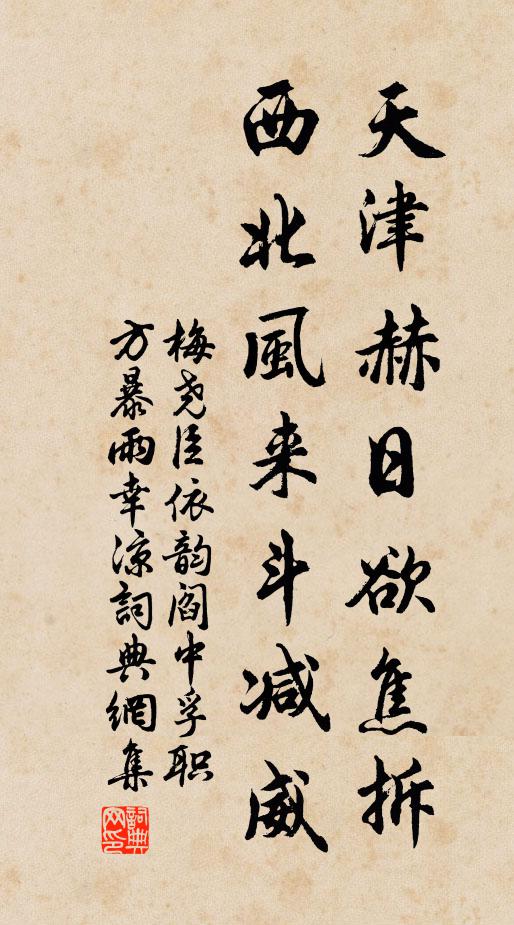 天津赫日欲焦拆
西北風来斗减威
梅尧臣依韵阎中孚职
方暴雨幸涼詞典網集
詞典网印